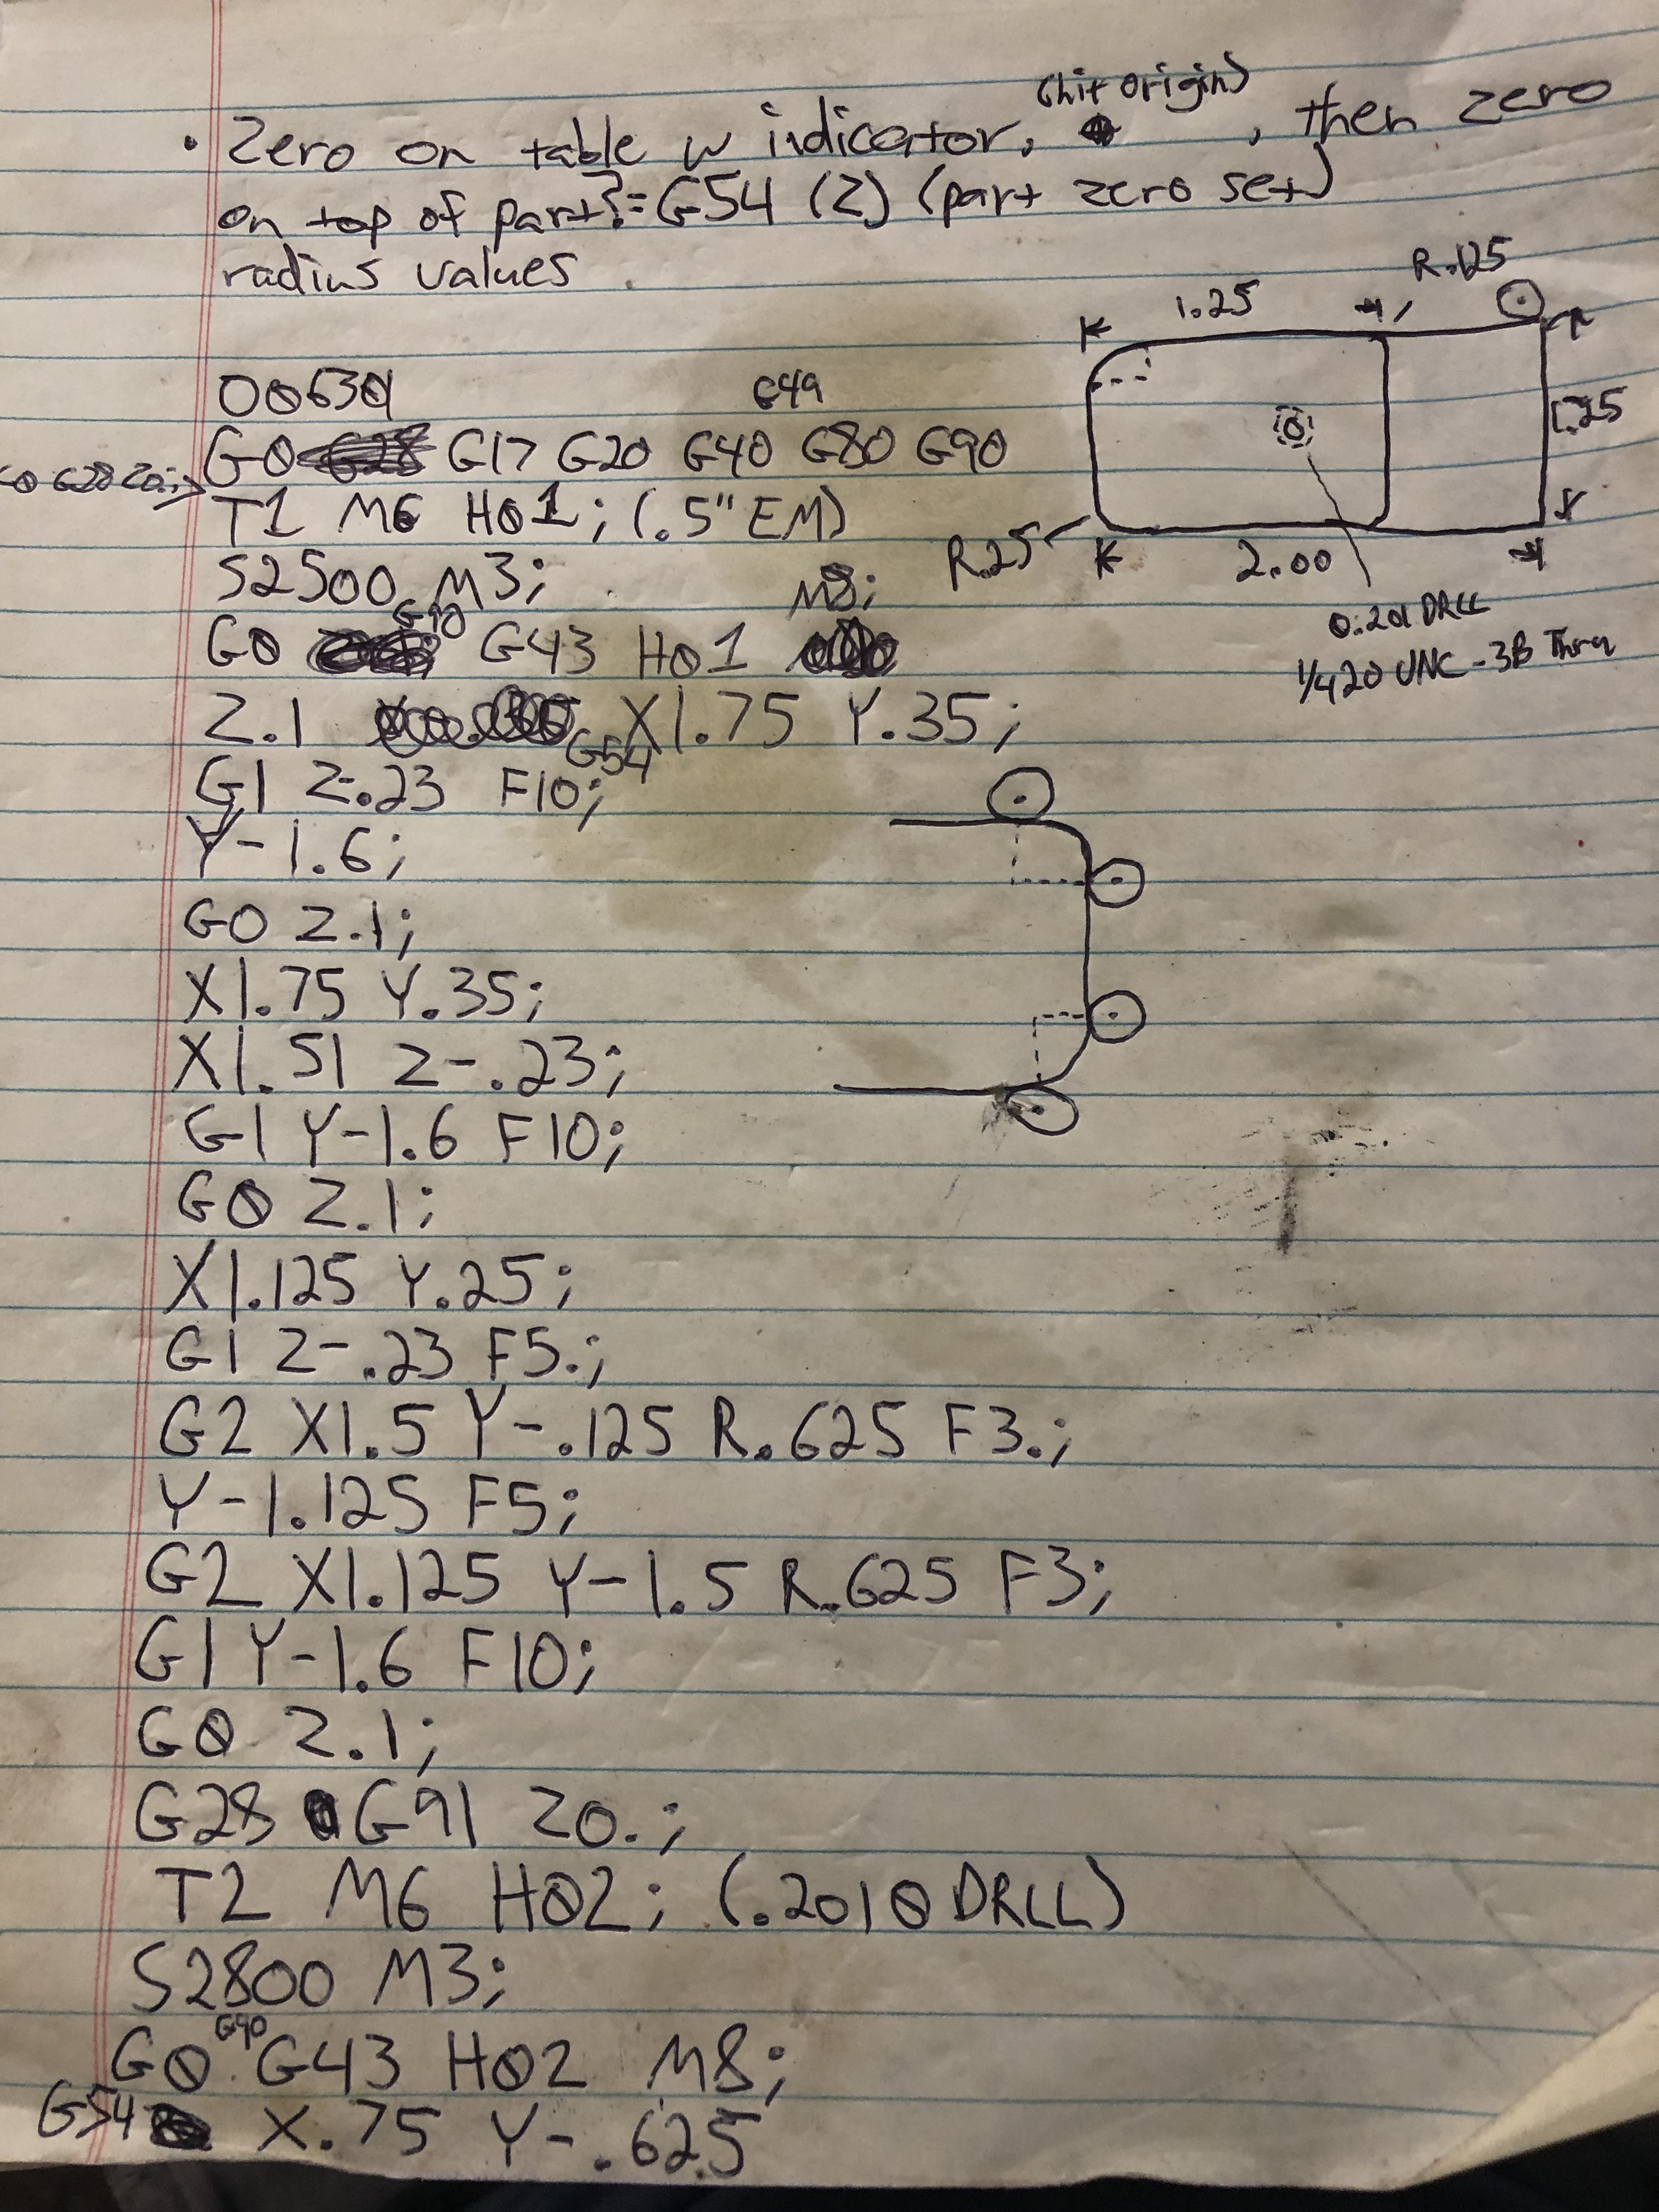 (hit origin)
• Zero on table w indicator, , then zero
on top of part?=G54 (Z) (part zero set)
radius values
R.125
1.25
1.25
R.25
2.00
0.201 DRLL
1/420 UNC-3B Thru
G49
G0 G17 G20 G40 G80 G90
T1 M6 H01; (.5" EM)
S2500 M3;
G90 M8;
G0 G43 H01
Z.1 G54 X1.75 Y.35;
G1 Z-.23 F10;
Y-1.6;
G0 Z.1;
X1.75 Y.35;
X1.51 Z-.23;
G1 Y-1.6 F10;
G0 Z.1;
X1.125 Y.25;
G1 Z-.23 F5.;
G2 X1.5 Y-.125 R.625 F3.;
Y-1.125 F5;
G2 X1.125 Y-1.5 R.625 F3;
G1 Y-1.6 F10;
G0 Z.1;
G28 G91 Z0.;
T2 M6 H02; (.2010 DRLL)
S2800 M3;
G90
G0 G43 H02 M8;
G54 X.75 Y-.625